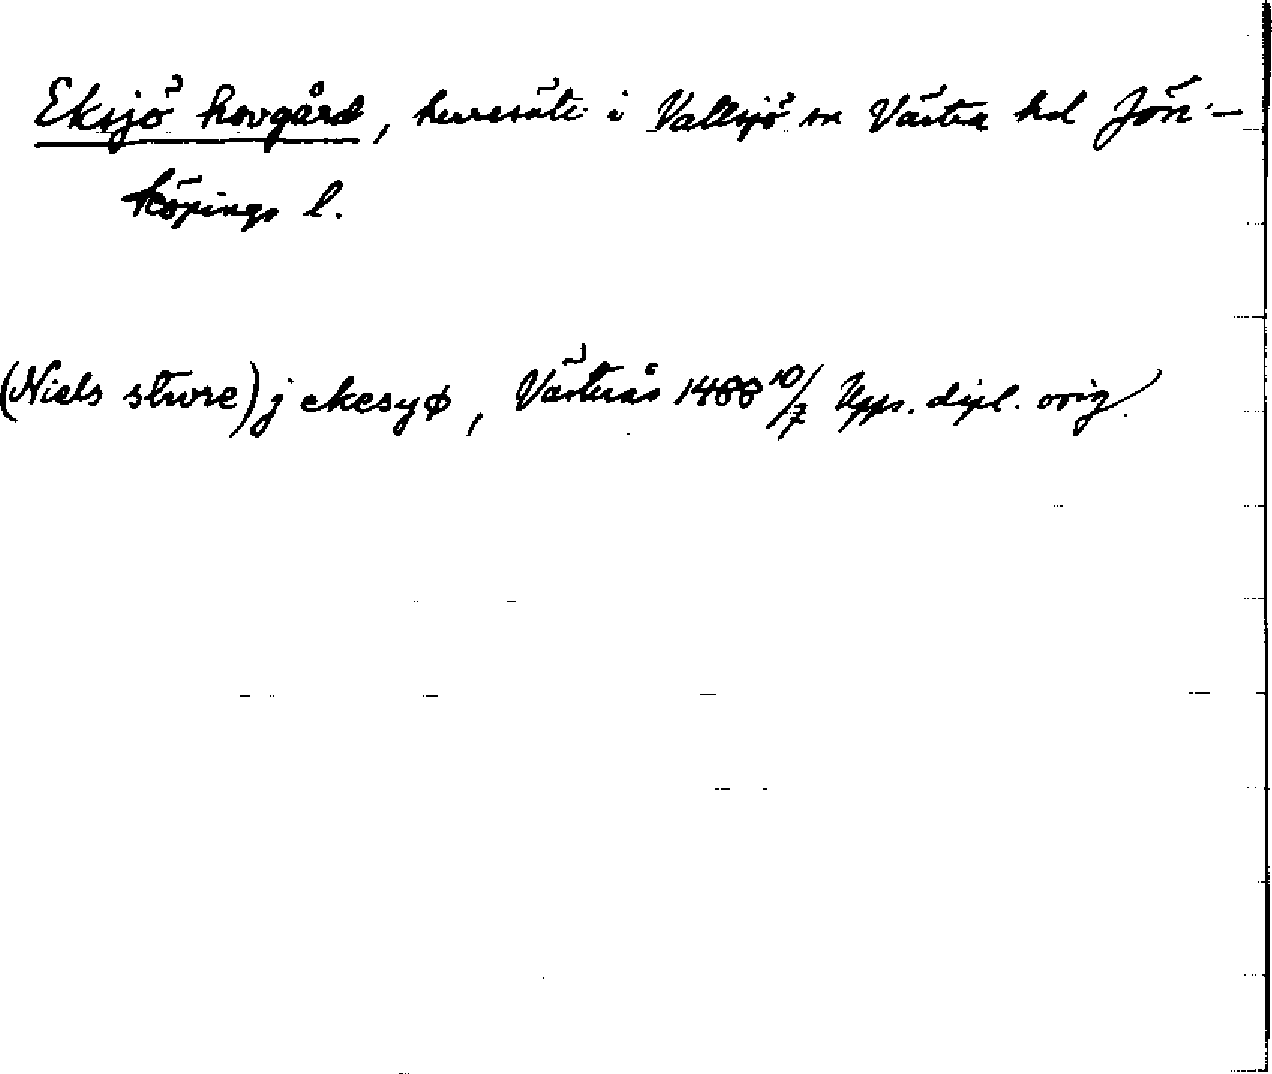 Eksjö hovgård, herresäte i Vallsjö sn Västra hd Jön-
köpings l.
(Niels stwre) j ekesyø, Västerås 1488 10/7 Upps. dipl. orig.